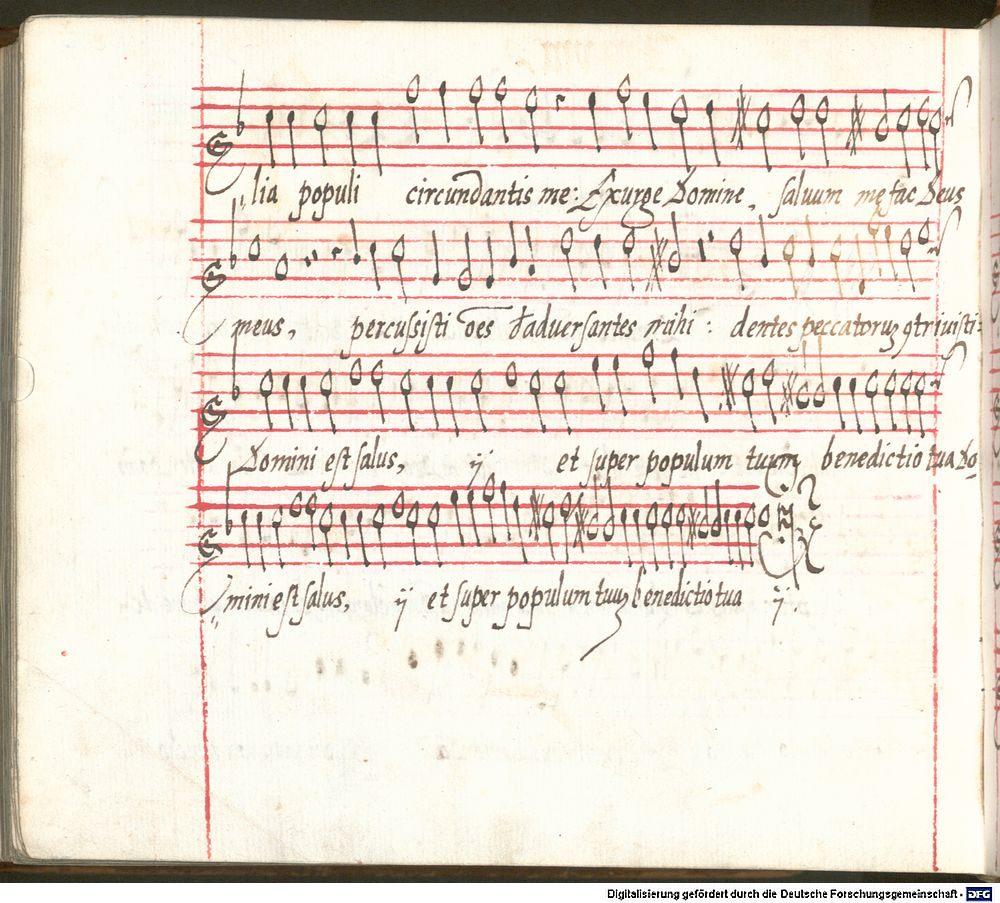 lia populi circundantis me: Exurge Domine, saluum me fac Deus
meus, percussisti oēs aduersantes mihi: dentes peccatoruȝ ꝯtriuisti:
Domini est salus, ij et super populum tuum benedictio tua Do
mini est salus, ij et super populum tuuȝ benedictio tua ij.
Digitalisierung gefördert durch die Deutsche Forschungsgemeinschaft - DFG